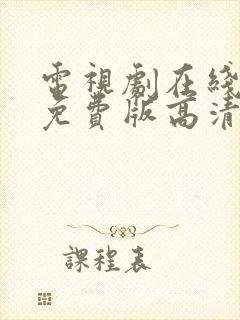 電視劇在綫
免費版高清
課程表